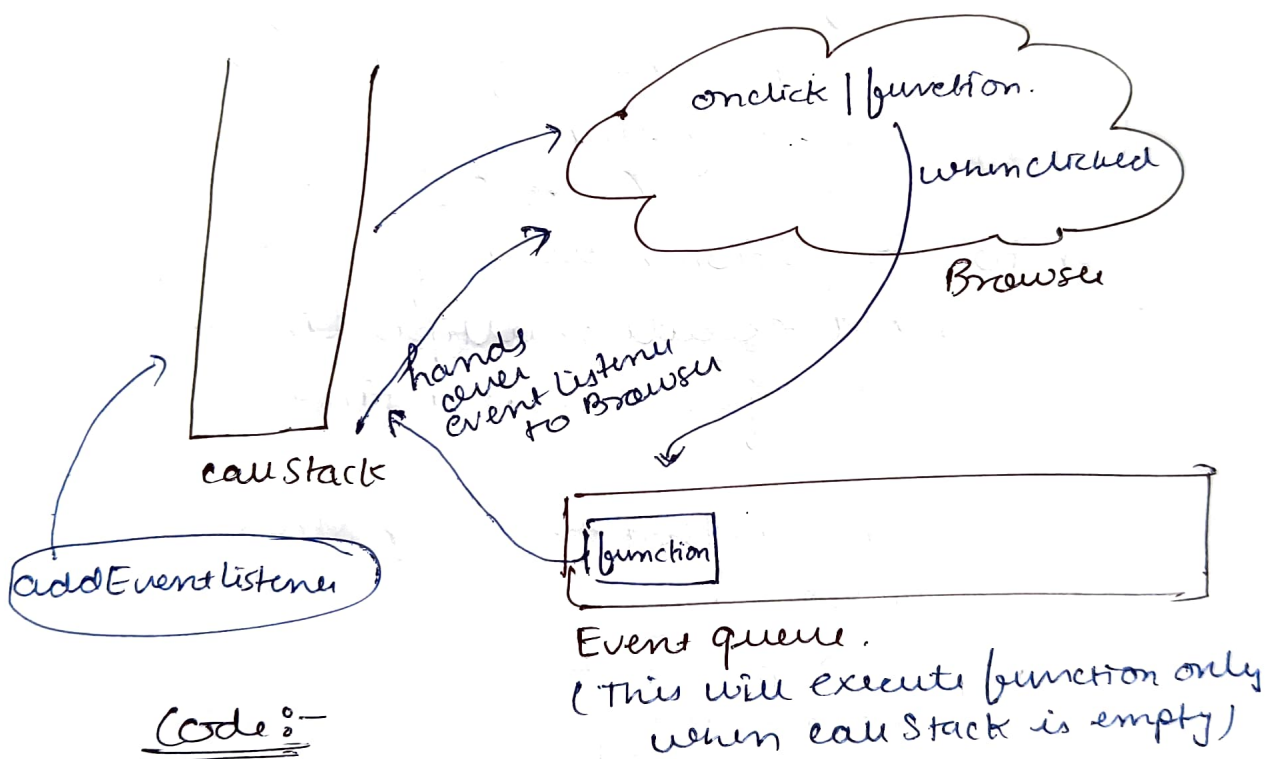 onclick | function.
when clicked
Browser
hands
over
event listener
to Browser
call Stack
addEventListener
function
Event queue.
(This will execute function only
when call Stack is empty)
Code :-